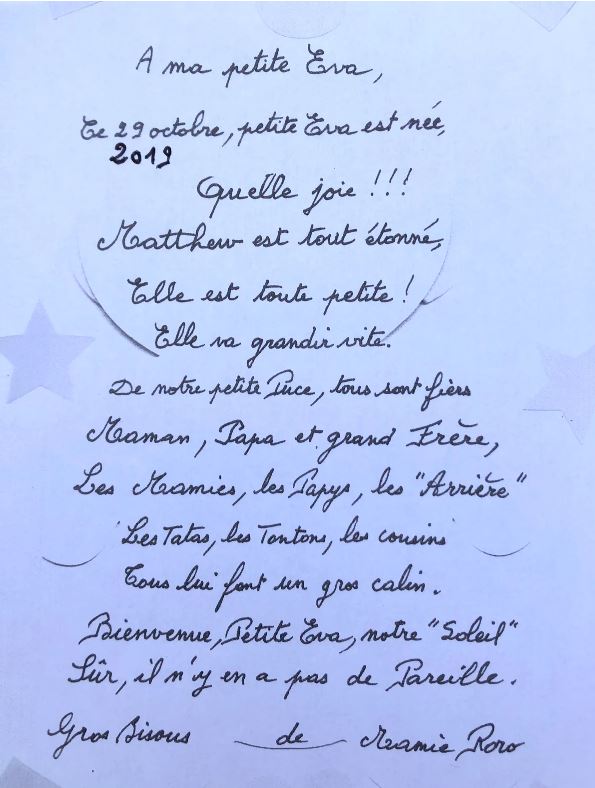 A ma petite Eva,
Ce 29 octobre, petite Eva est née,
2019
Quelle joie !!!
Matthew est tout étonné,
Elle est toute petite !
Elle va grandir vite.
De notre petite Puce, tous sont fiers
Maman, Papa et grand Frère,
Les Mamies, les Papys, les "Arrière"
Les Tatas, les Tontons, les cousins
Tous lui font un gros calin.
Bienvenue, Petite Eva, notre "Soleil"
Sûr, il n'y en a pas de Pareille.
Gros Bisous de Mamie Roro